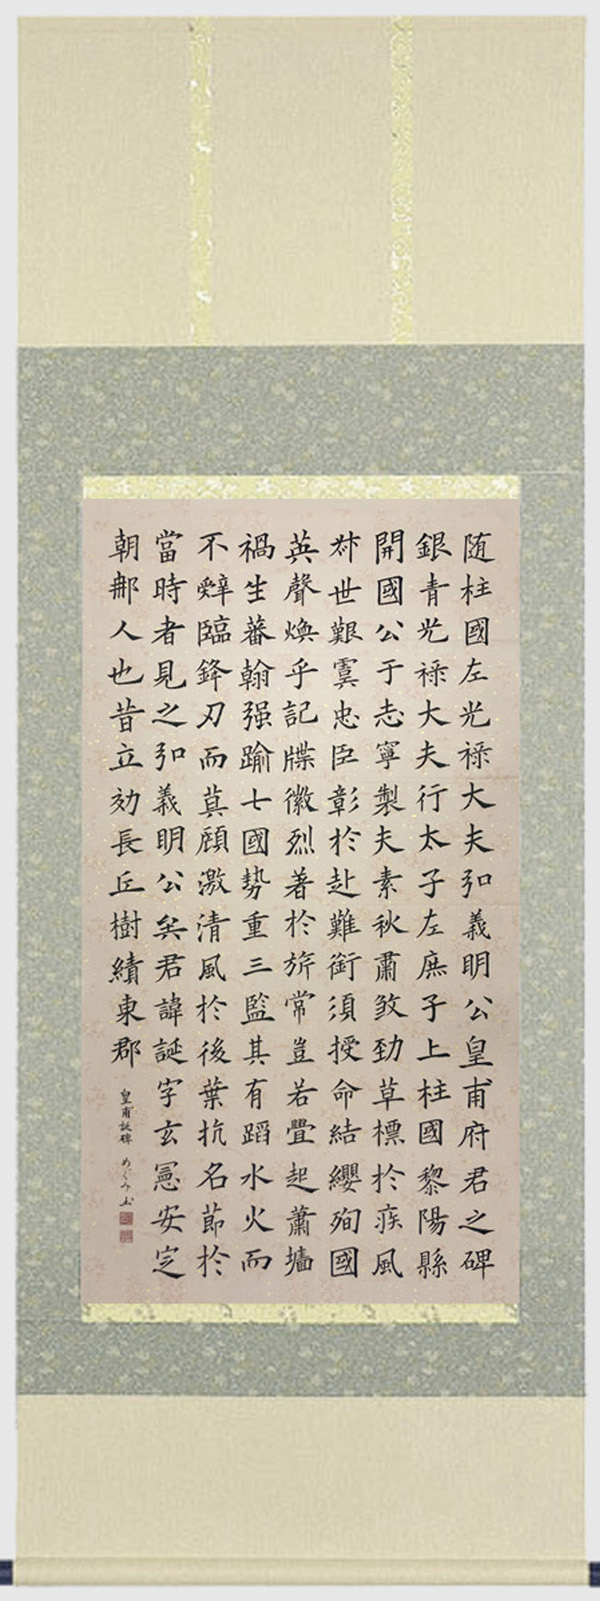 随柱國左光禄大夫弘義明公皇甫府君之碑
銀青光禄大夫行太子左庶子上柱國黎陽縣
開國公于志寧製夫素秋肅煞勁草標於疾風
叔世艱虞忠臣彰於赴難銜須授命結纓殉國
英聲煥乎記牒徽烈著於旂常豈若疊起蕭墻
禍生蕃翰强踰七國勢重三監其有蹈水火而
不辭臨鋒刃而莫顧激清風於後葉抗名節於
當時者見之弘義明公矣君諱誕字玄憲安定
朝那人也昔立効長丘樹績東郡
皇甫誕碑